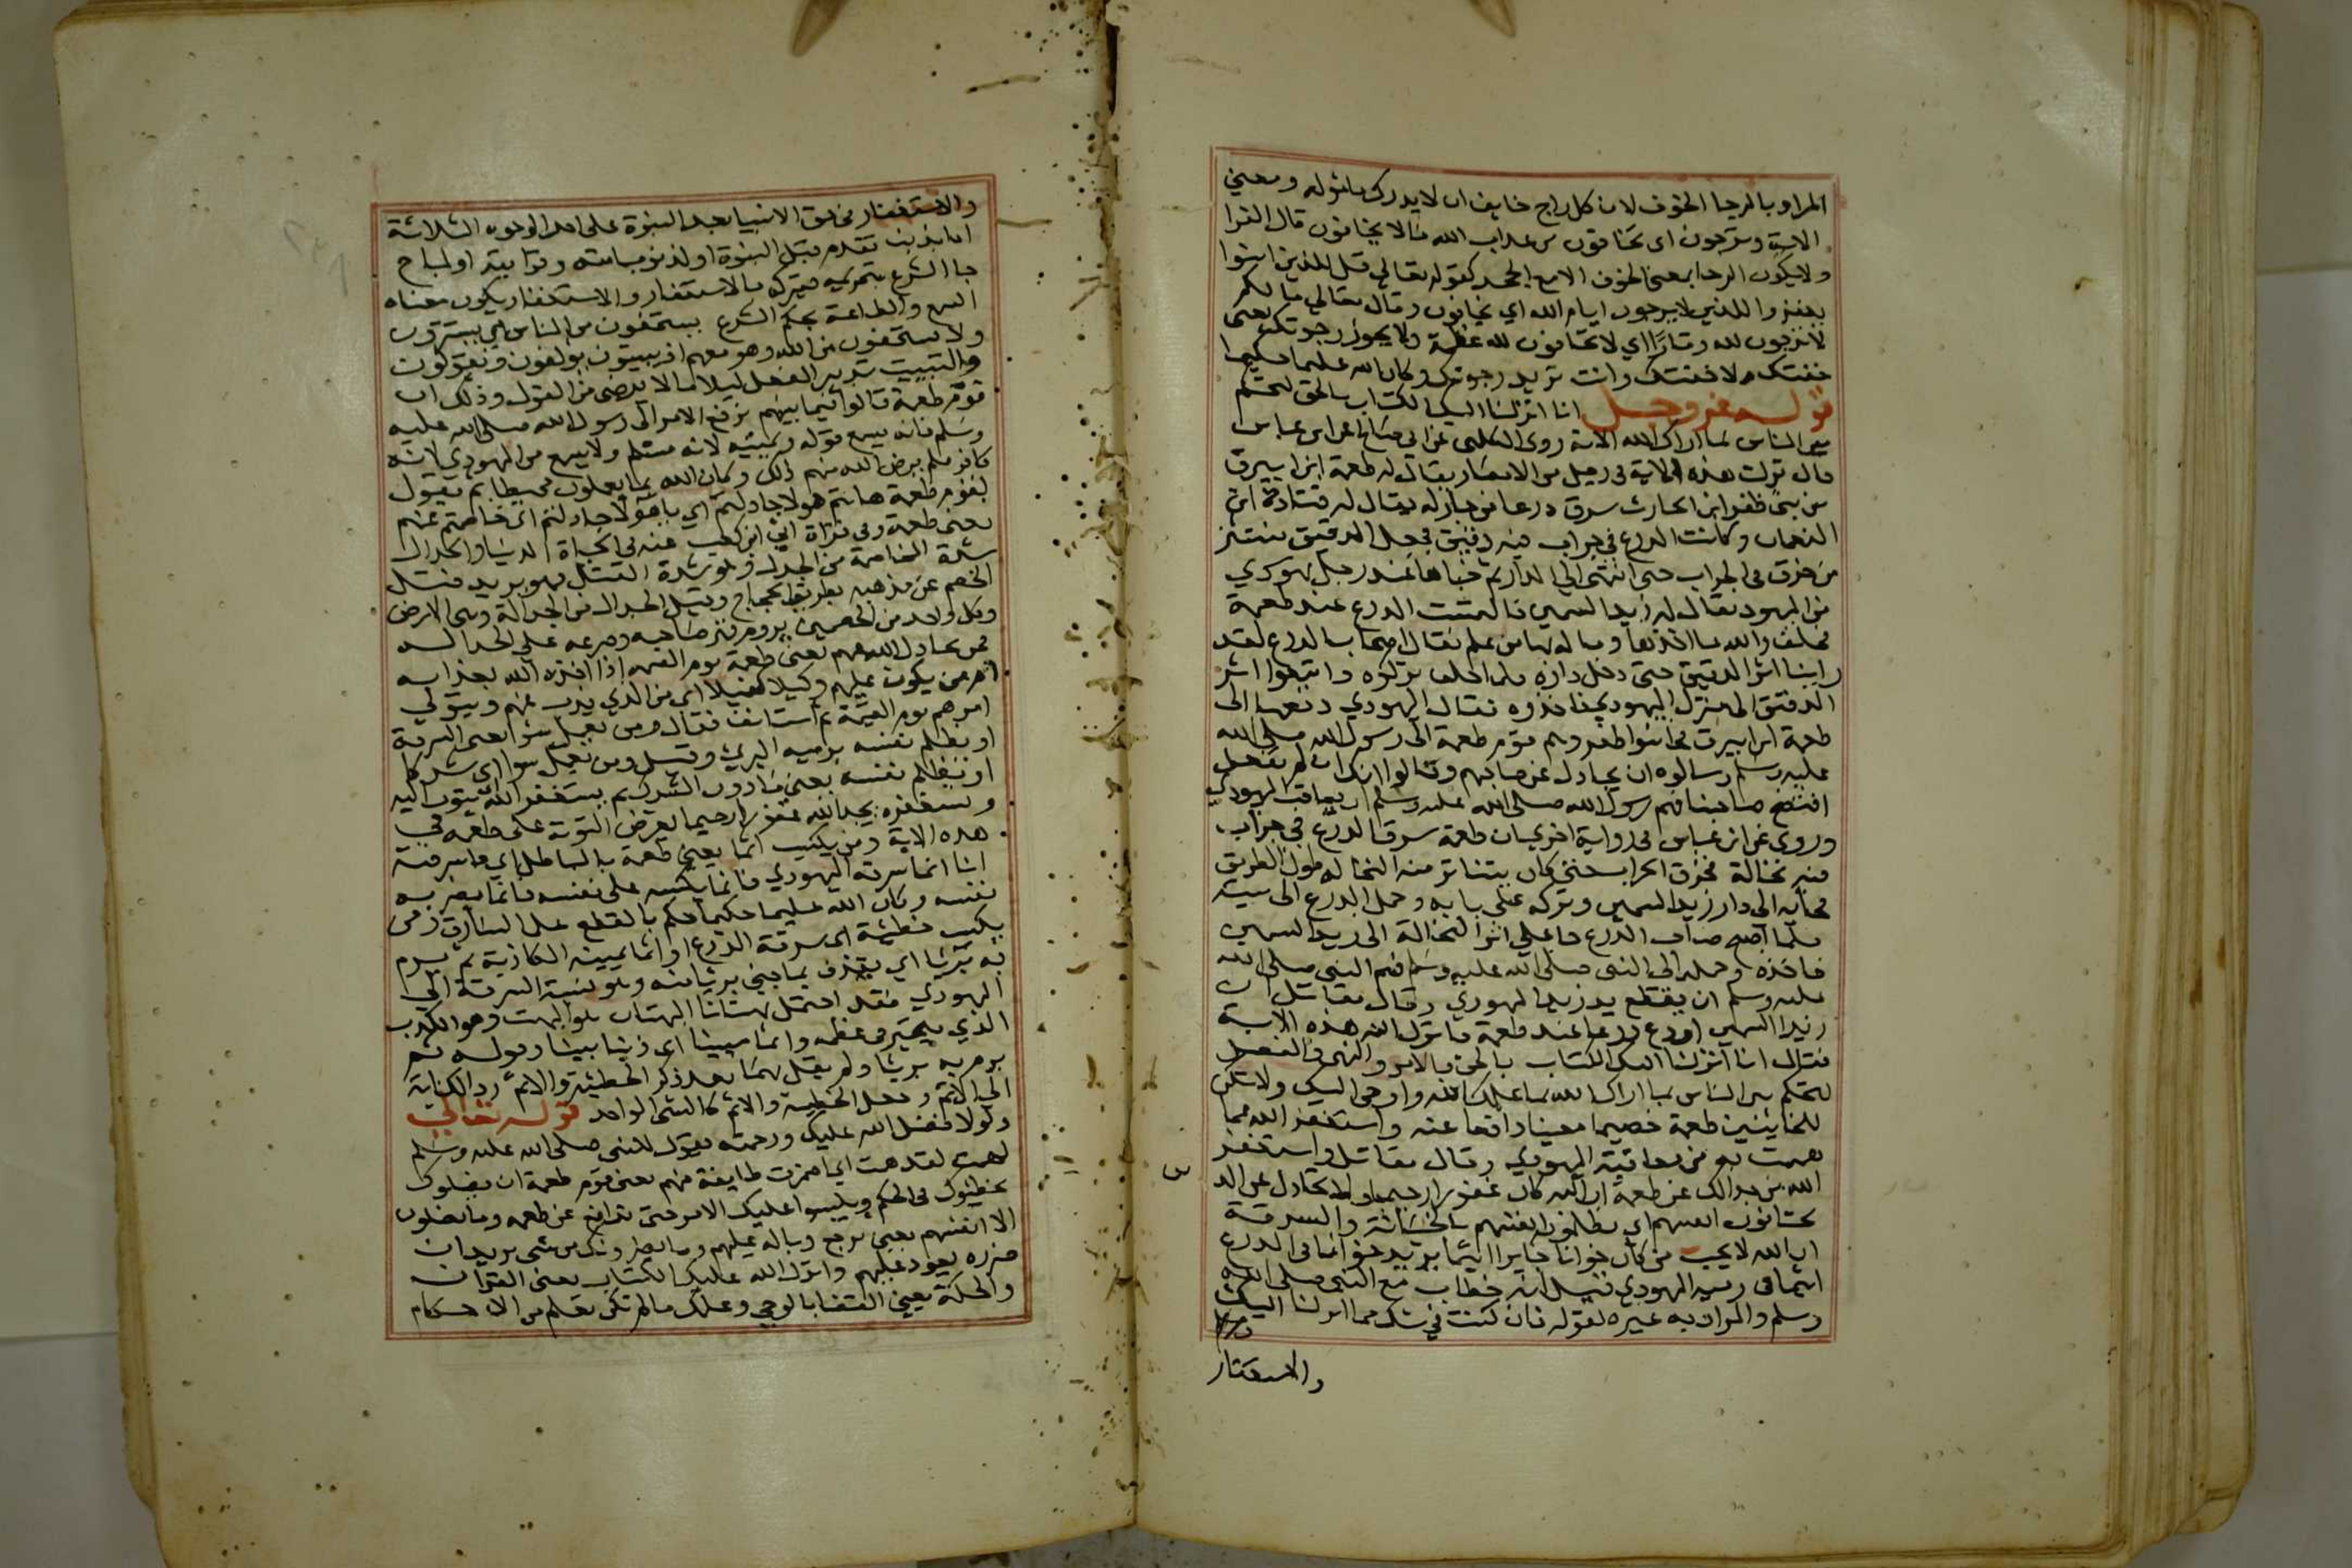 المراد بالرجا الخوف لان كل راج خايف ان لا يدرك مامؤله ومعني
الاية وترجون اي تخافون من عذاب الله ما لا يخافون قال الفرا
ولا يكون الرجا بمعنى الخوف الا مع الجحد كقوله تعالى قل للذين امنوا
يغفروا للذين لا يرجون ايام الله اي يخافون وقال تعالى ما لكم
لا ترجون لله وقارًا اي لا تخافون لله عظمة ولا يجوز رجوتك بمعنى
خفتك ولا خفتك وانت تريد رجوتك وكان الله عليما حكيما
قوله عز وجل انا انزلنا اليك الكتاب بالحق لتحكم
بين الناس بما اراك الله الاية روى الكلبي عن ابي صالح عن ابن عباس
قال نزلت هذه الاية في رجل من الانصار يقال له طعمة ابن ابيرق
من بني ظفر ابن الحارث سرق درعا من جار له يقال له قتادة ابن
النعمان وكانت الدرع في جراب فيه دقيق فجعل الدقيق ينتثر
من خرق في الجراب حتى انتهى الى الدار ثم خباها عند رجل يهودي
من اليهود يقال له زيد السمين فالتمست الدرع عند طعمة
فحلف والله ما اخذها وما له بها من علم فقال اصحاب الدرع لقد
راينا اثر الدقيق حتى دخل داره فلما حلف تركوه واتبعوا اثر
الدقيق الى منزل اليهودي فاخذوه فقال اليهودي دفعها الى
طعمة ابن ابيرق فجا بنوا ظفر وهم قوم طعمة الى رسول الله صلى الله
عليه وسلم وسالوه ان يجادل عن صاحبهم وقالوا انك ان لم تفعل
افتضح صاحبنا فهم رسول الله صلى الله عليه وسلم ان يعاقب اليهودي
وروى عن ابن عباس في رواية اخرى ان طعمة سرق الدرع في جراب
فيه نخالة فخرق الجراب حتى كان يتناثر منه النخالة طول الطريق
فجا به الى دار زيد السمين وتركه على بابه وحمل الدرع الى بيته
فلما اصبح صاحب الدرع جا على اثر النخالة الى زيد السمين
فاخذه وحمله الى النبي صلى الله عليه وسلم فهم النبي صلى الله
عليه وسلم ان يقطع يد زيد اليهودي وقال مقاتل ان
زيدا السمين اودع درعا عند طعمة فانزل الله هذه الاية
فقال انا انزلنا اليك الكتاب بالحق بالامر والنهي والفصل
لتحكم بين الناس بما اراك الله بما علمك الله واوحى اليك ولا تكن
للخاينين طعمة خصيما معينا دافعا عنه واستغفر الله مما
هممت به من معاقبة اليهودي وقال مقاتل واستغفر
الله من جدالك عن طعمة ان الله كان غفورا رحيما ولا تجادل عن الذ
يختانون انفسهم اي يظلمون انفسهم بالخيانة والسرقة
ان الله لا يحب من كان خوانا خاينا اثيما يريد خوانا في الدرع
اثيما في رميه اليهودي فقيل انه خطاب مع النبي صلى الله عليه
وسلم والمراد به غيره لقوله فان كنت في شك مما انزلنا اليك
والاستغفار
والاستغفار في حق الانبيا بعد النبوة على احد الوجوه الثلاثة
اما بذنب تقدم قبل النبوة او لذنوب امته وقرابته او لمباح
جا الشرع بتحريمه فيتركه بالاستغفار والاستغفار يكون معناه
السمع والطاعة بحكم الشرع يستخفون من الناس اي يستترون
ولا يستخفون من الله وهو معهم اذ يبيتون يولفون ويقولون
والتبييت تدبير الفعل ليلا ما لا يرضى من القول وذلك ان
قوم طعمة قالوا فيما بينهم نرفع الامر الى رسول الله صلى الله عليه
وسلم فانه يسمع قوله ويمينه لانه مسلم ولا يسمع من اليهودي لانه
كافر فلم يرض الله منهم ذلك وكان الله بما يعملون محيطا ثم يقول
لقوم طعمة هاانتم هولا جادلتم اي يا هولا جادلتم اي خاصمتم عنهم
يعني طعمة وفي قراة ابي ابن كعب عنه في الحياة الدنيا والجدال
شدة المخاصمة من الجدل وهو شدة الفتل فهو يريد فتل
الخصم عن مذهبه بطريق الحجاج وقيل الجدال من الجدالة وهي الارض
وكل واحد من الخصمين يروم قهر صاحبه وصرعه على الجدالة
فمن يجادل الله عنهم يعني طعمة يوم القيمة اذا اخذه الله بعذابه
ام من يكون عليهم وكيلا كفيلا اي من الذي يذب عنهم ويتولى
امرهم يوم القيمة ثم استانف فقال ومن يعمل سوا يعني السرقة
او يظلم نفسه برميه البري وقيل ومن يعمل سوا اي شركا
او يظلم نفسه يعني ما دون الشرك ثم يستغفر الله يتوب اليه
ويستغفره يجد الله غفورا رحيما يعرض التوبة على طعمة في
هذه الاية ومن يكسب اثما يعني طعمة بالباطل اي ما سرقته
انا انما سرقه اليهودي فانما يكسبه على نفسه فانما يضر به
نفسه وكان الله عليما حكيما حكم بالقطع على السارق ومن
يكسب خطيئة اي سرقة الدرع او اثما يمينه الكاذبة ثم يرم
به بريئا اي يقذف بما جنى بريئا منه وهو نسبة السرقة الى
اليهودي فقد احتمل بهتانا البهتان هو البهت وهو الكذب
الذي يتحير في عظمه واثما مبينا اي ذنبا بينا وقوله ثم
يرم به بريئا ولم يقل بهما بعد ذكر الخطيئة والاثم رد الكناية
الى الاثم وجعل الخطيئة والاثم كالشي الواحد قوله تعالى
ولولا فضل الله عليك ورحمته يقول للنبي صلى الله عليه وسلم
لهمت لقد همت اي اضمرت طايفة منهم يعني قوم طعمة ان يضلوك
يخطئوك في الحكم ويلبسوا عليك الامر حتى تدافع عن طعمة وما يضلون
الا انفسهم يعني يرجع وباله عليهم وما يضرونك من شي يريد ان
ضرره يعود عليهم وانزل الله عليك الكتاب يعني القران
والحكمة يعني القضا بالوحي وعلمك ما لم تكن تعلم من الاحكام